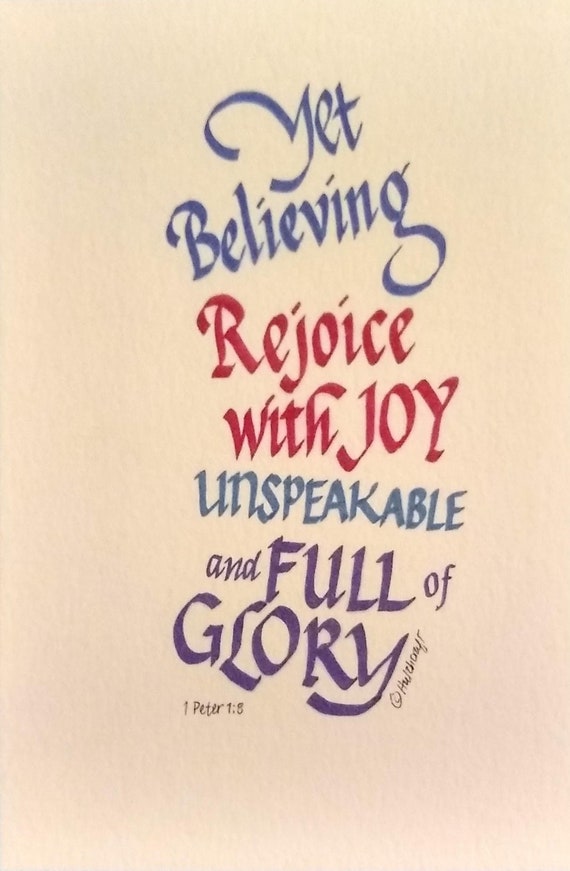 Yet
Believing
Rejoice
with JOY
UNSPEAKABLE
and FULL of
GLORY
©Hutchcraft
1 Peter 1:8